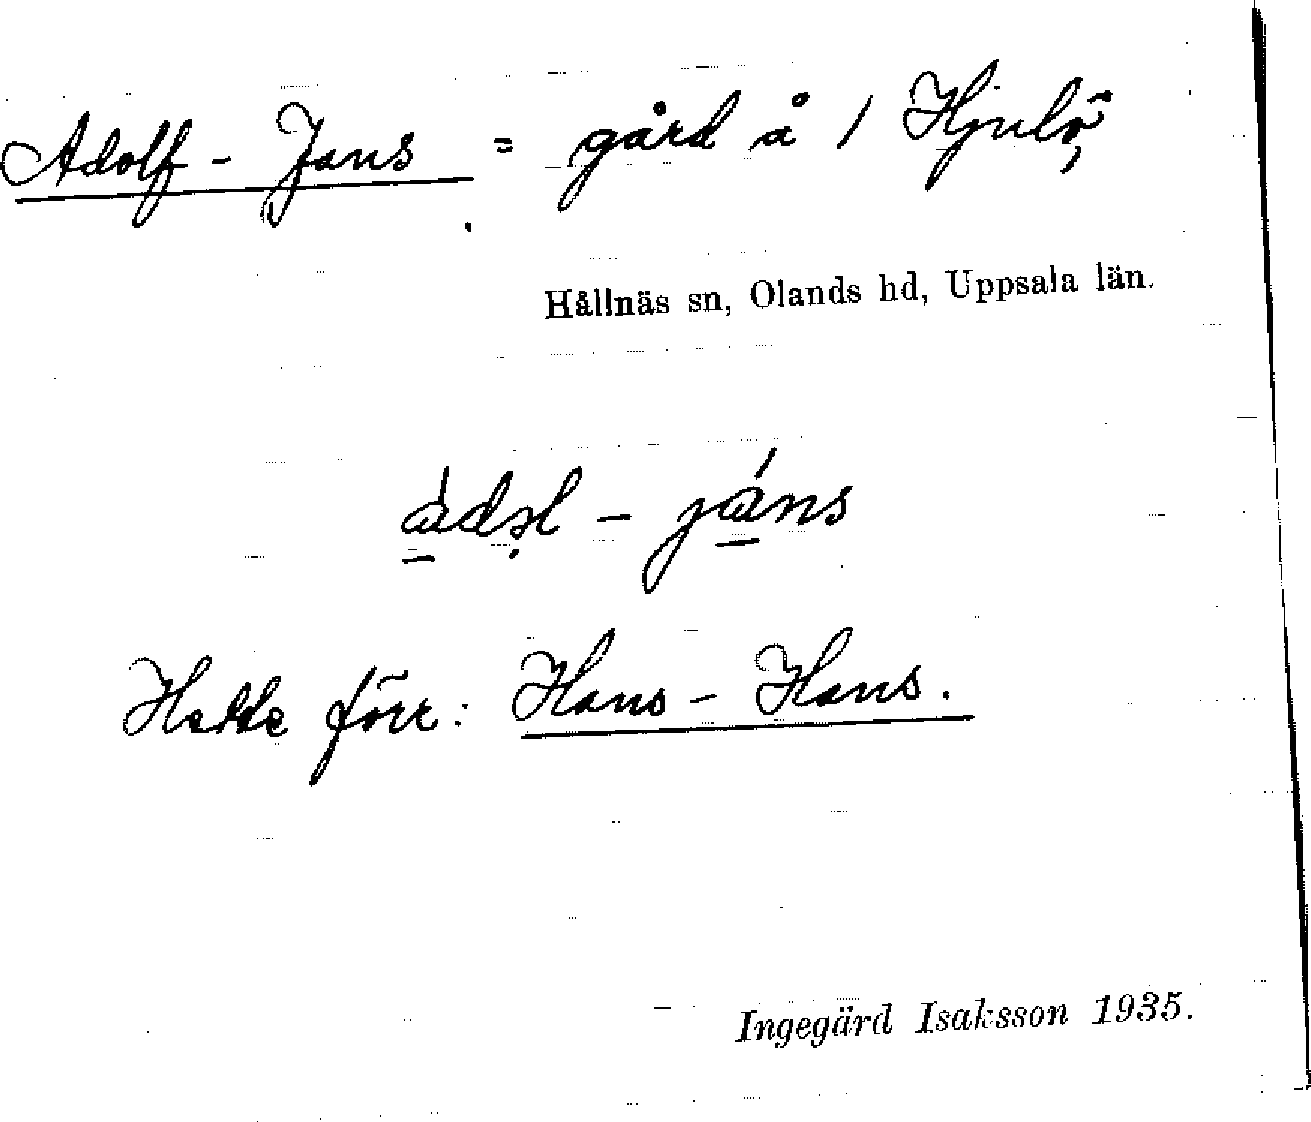 Adolf-Jans = gård å 1 Hjulö,
Hållnäs sn, Olands hd, Uppsala län.
ádəl - jáns
Hette förr: Hans-Hans.
Ingegärd Isaksson 1935.